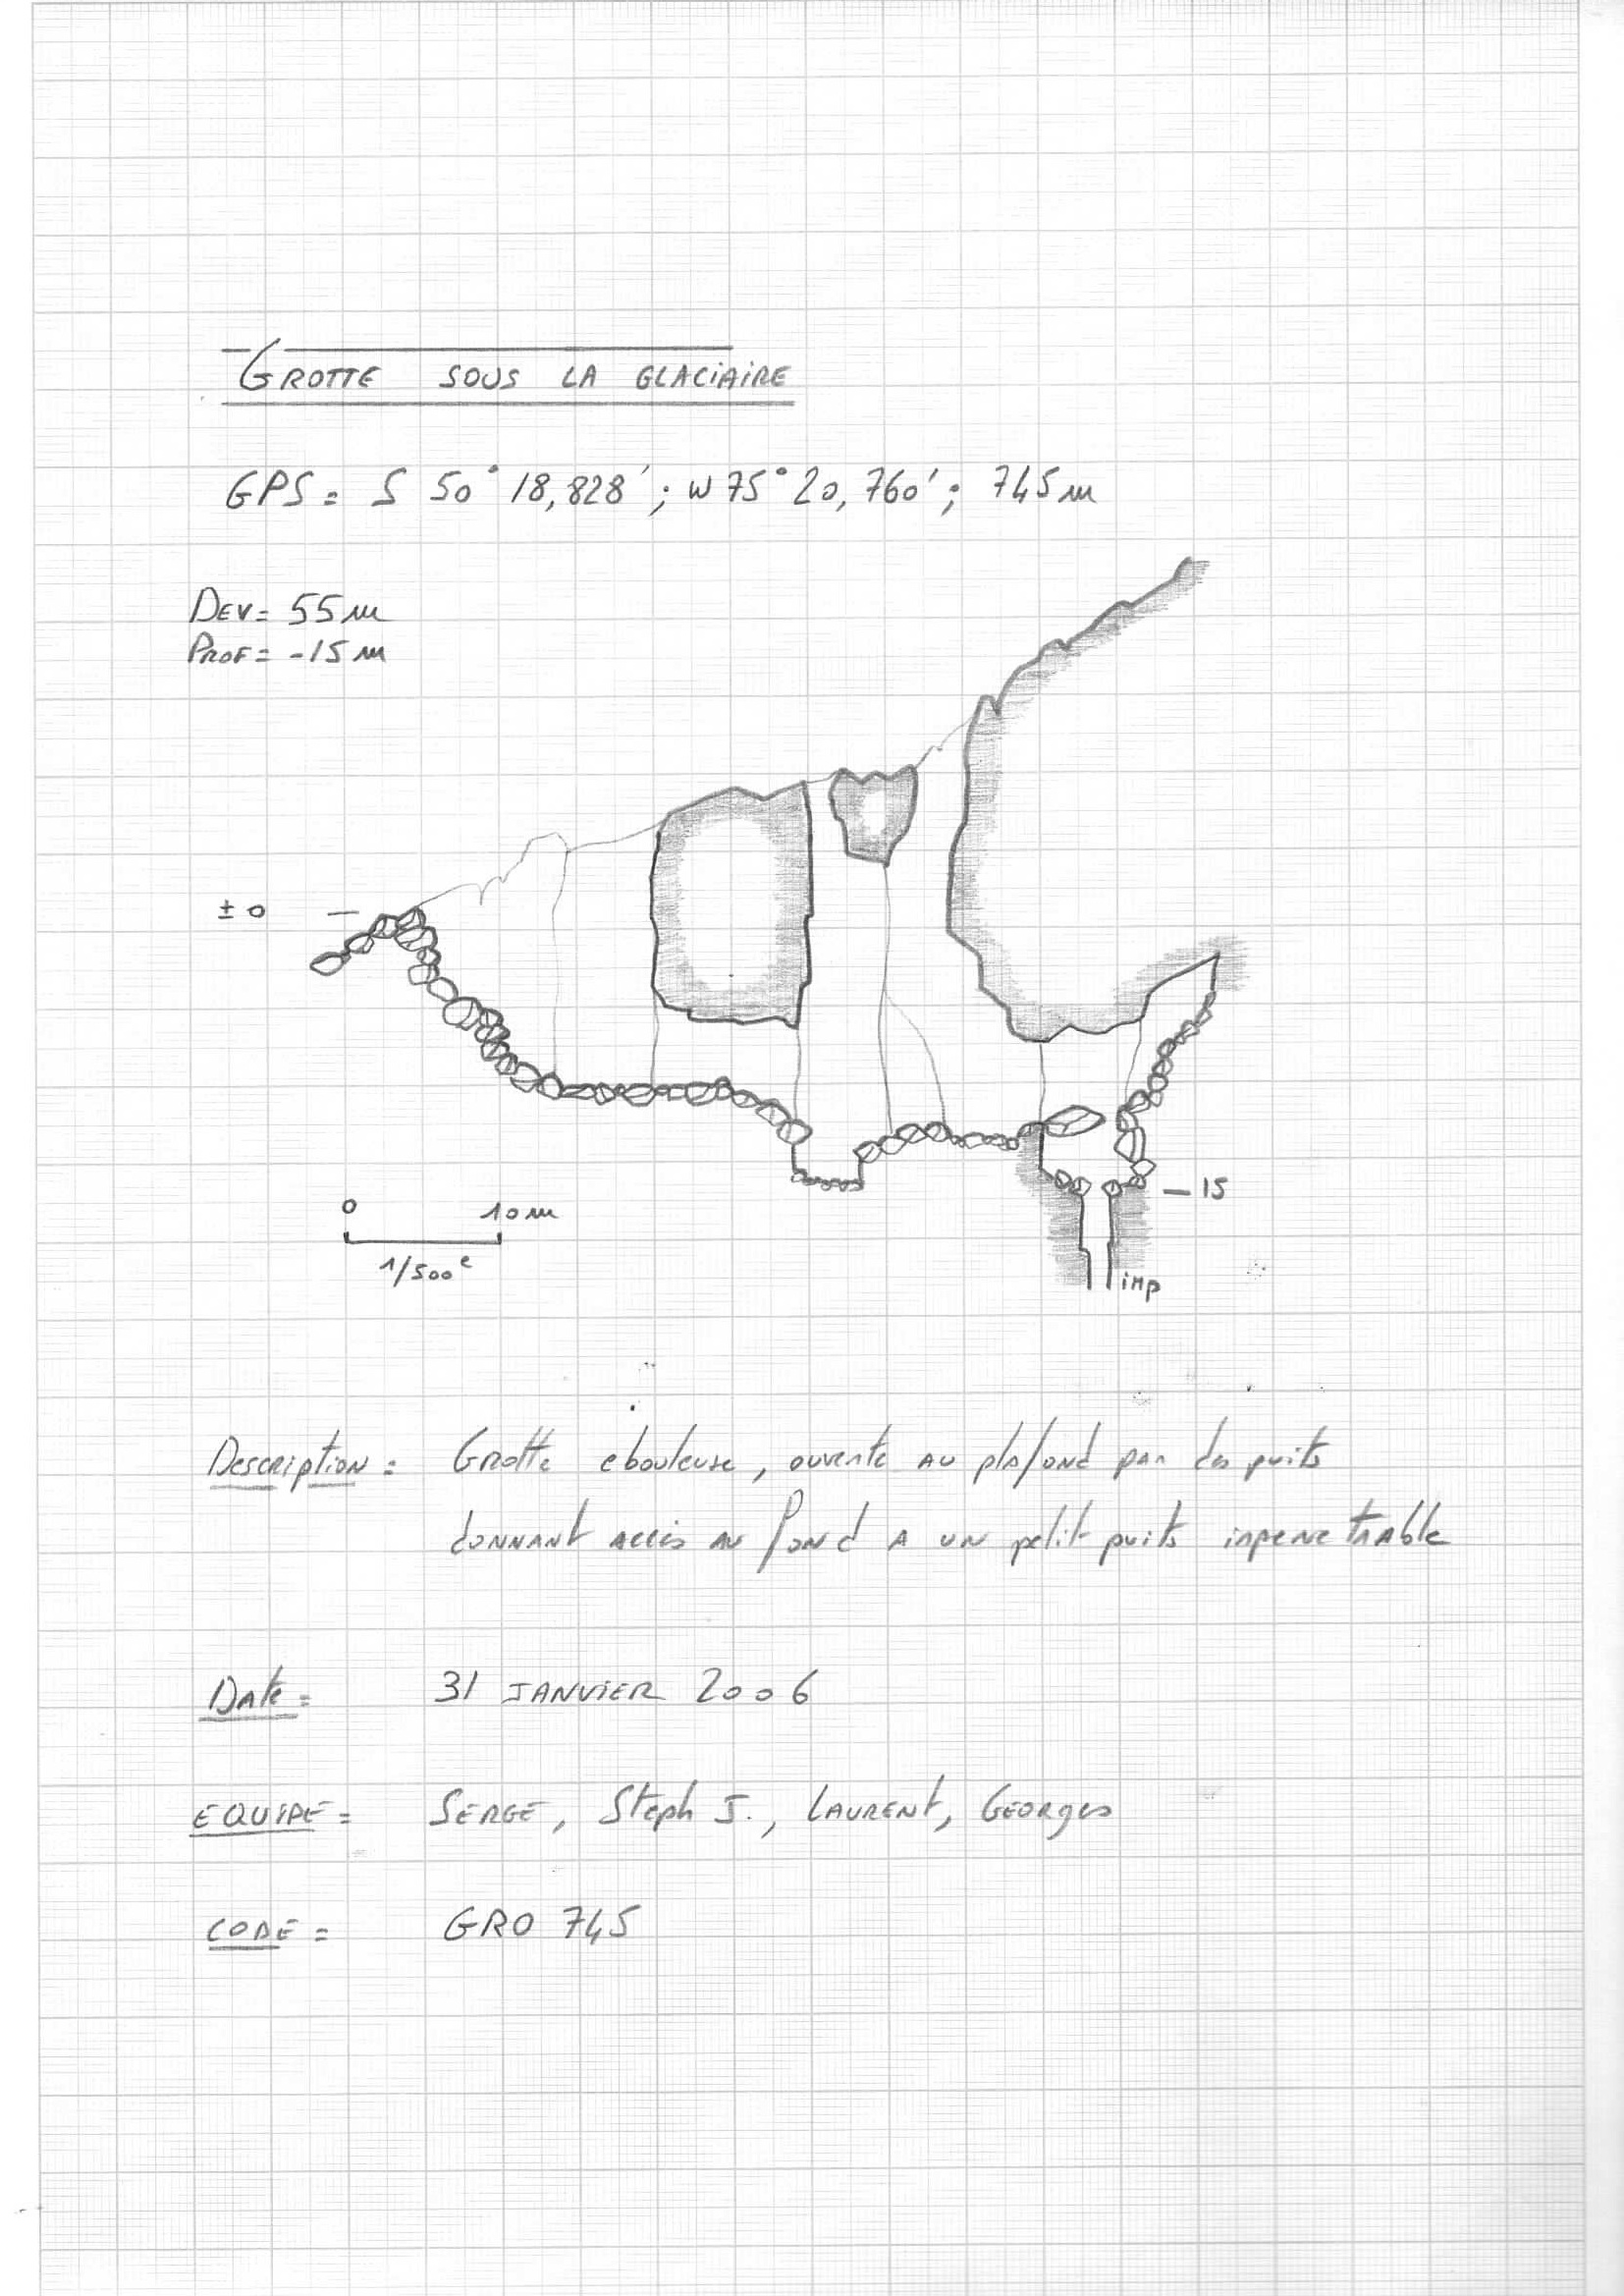 GROTTE SOUS LA GLACIAIRE
GPS = S 50° 18,828' ; W 75° 20,760' ; 745 m
DEV = 55 m
PROF = -15 m
± 0 —
— 15
0 10 m
1/500e
imp
DESCRIPTION = Grotte ebouleuse, ouverte au plafond par des puits
donnant accès au fond a un petit puits inpenetrable
Date = 31 JANVIER 2006
EQUIPE = SERGE, Steph J., LAURENT, GEORGES
CODE = GRO 745